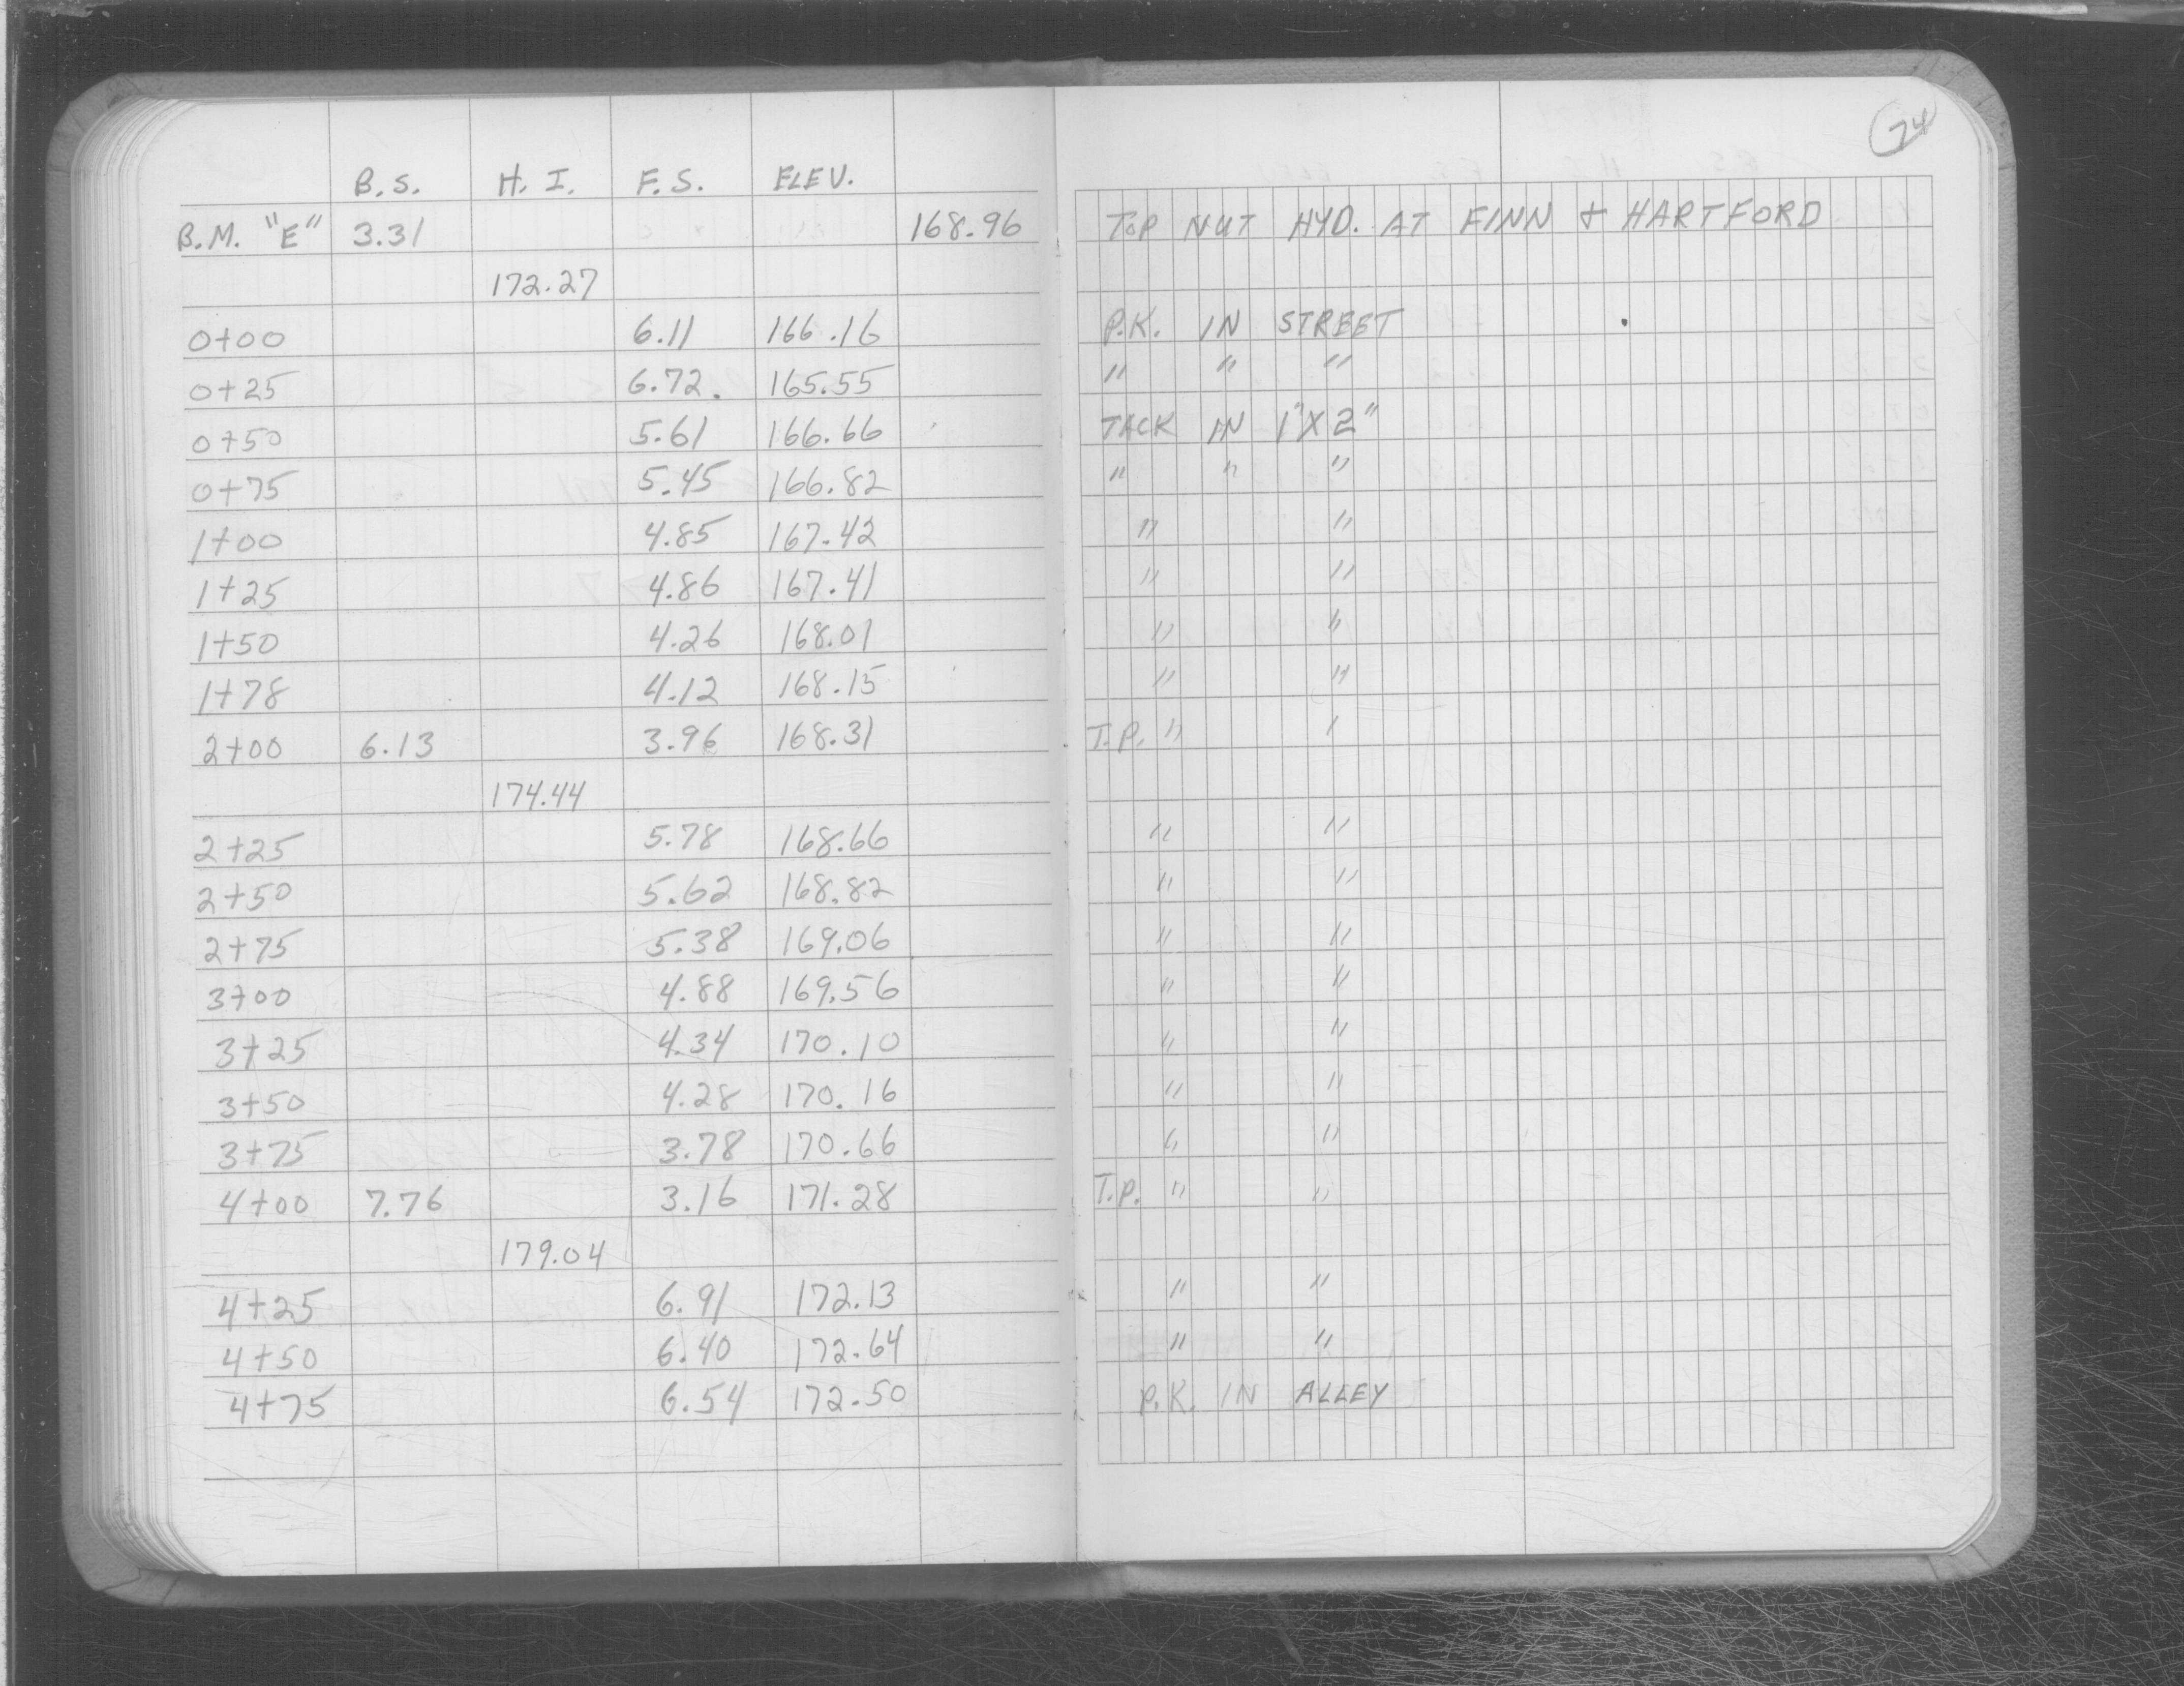 74
B.S. H.I. F.S. ELEV.
B.M. "E" 3.31 168.96 TOP NUT HYD. AT FINN + HARTFORD
172.27
0+00 6.11 166.16 P.K. IN STREET
0+25 6.72 165.55 " " "
0+50 5.61 166.66 TACK IN 1"X2"
0+75 5.45 166.82 " " "
1+00 4.85 167.42 " "
1+25 4.86 167.41 " "
1+50 4.26 168.01 " "
1+78 4.12 168.15 " "
2+00 6.13 3.96 168.31 T.P. " "
174.44
2+25 5.78 168.66 " "
2+50 5.62 168.82 " "
2+75 5.38 169.06 " "
3+00 4.88 169.56 " "
3+25 4.34 170.10 " "
3+50 4.28 170.16 " "
3+75 3.78 170.66 " "
4+00 7.76 3.16 171.28 T.P. " "
179.04
4+25 6.91 172.13 " "
4+50 6.40 172.64 " "
4+75 6.54 172.50 P.K. IN ALLEY